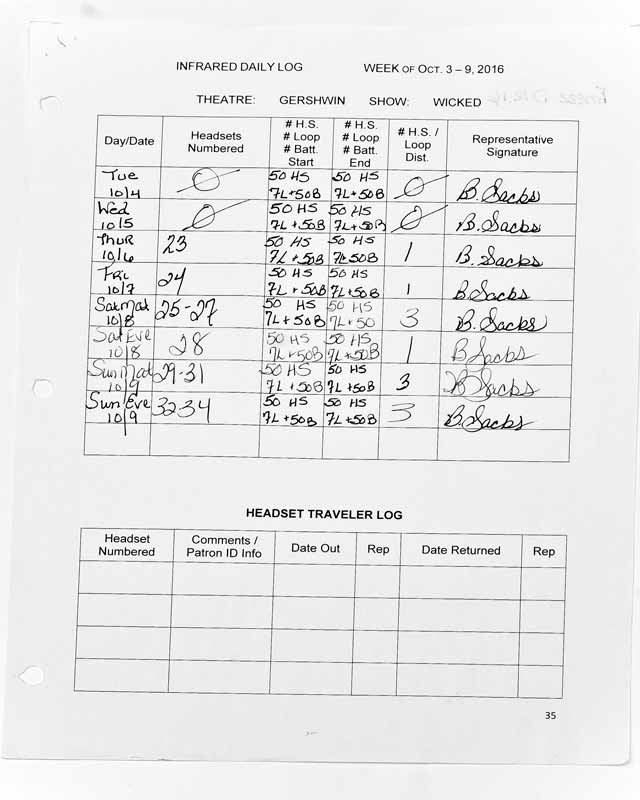 INFRARED DAILY LOG WEEK OF OCT. 3 – 9, 2016
THEATRE: GERSHWIN SHOW: WICKED
Day/Date Headsets Numbered # H.S. # Loop # Batt. Start # H.S. # Loop # Batt. End # H.S. / Loop Dist. Representative Signature
Tue 10/4 0 50 HS 7L+50B 50 HS 7L+50B 0 B. Sacks
Wed 10/5 0 50 HS 7L+50B 50 HS 7L+50B 0 B. Sacks
Thur 10/6 23 50 HS 7L+50B 50 HS 7L 50B 1 B. Sacks
Fri 10/7 24 50 HS 7L+50B 50 HS 7L+50B 1 B. Sacks
Sat Mat 10/8 25-27 50 HS 7L+50B 50 HS 7L+50 3 B. Sacks
Sat Eve 10/8 28 50 HS 7L+50B 50 HS 7L+50B 1 B Sacks
Sun Mat 10/9 29-31 50 HS 7L+50B 50 HS 7L+50B 3 B Sacks
Sun Eve 10/9 32-34 50 HS 7L+50B 50 HS 7L+50B 3 B. Sacks
HEADSET TRAVELER LOG
Headset Numbered Comments / Patron ID Info Date Out Rep Date Returned Rep
35